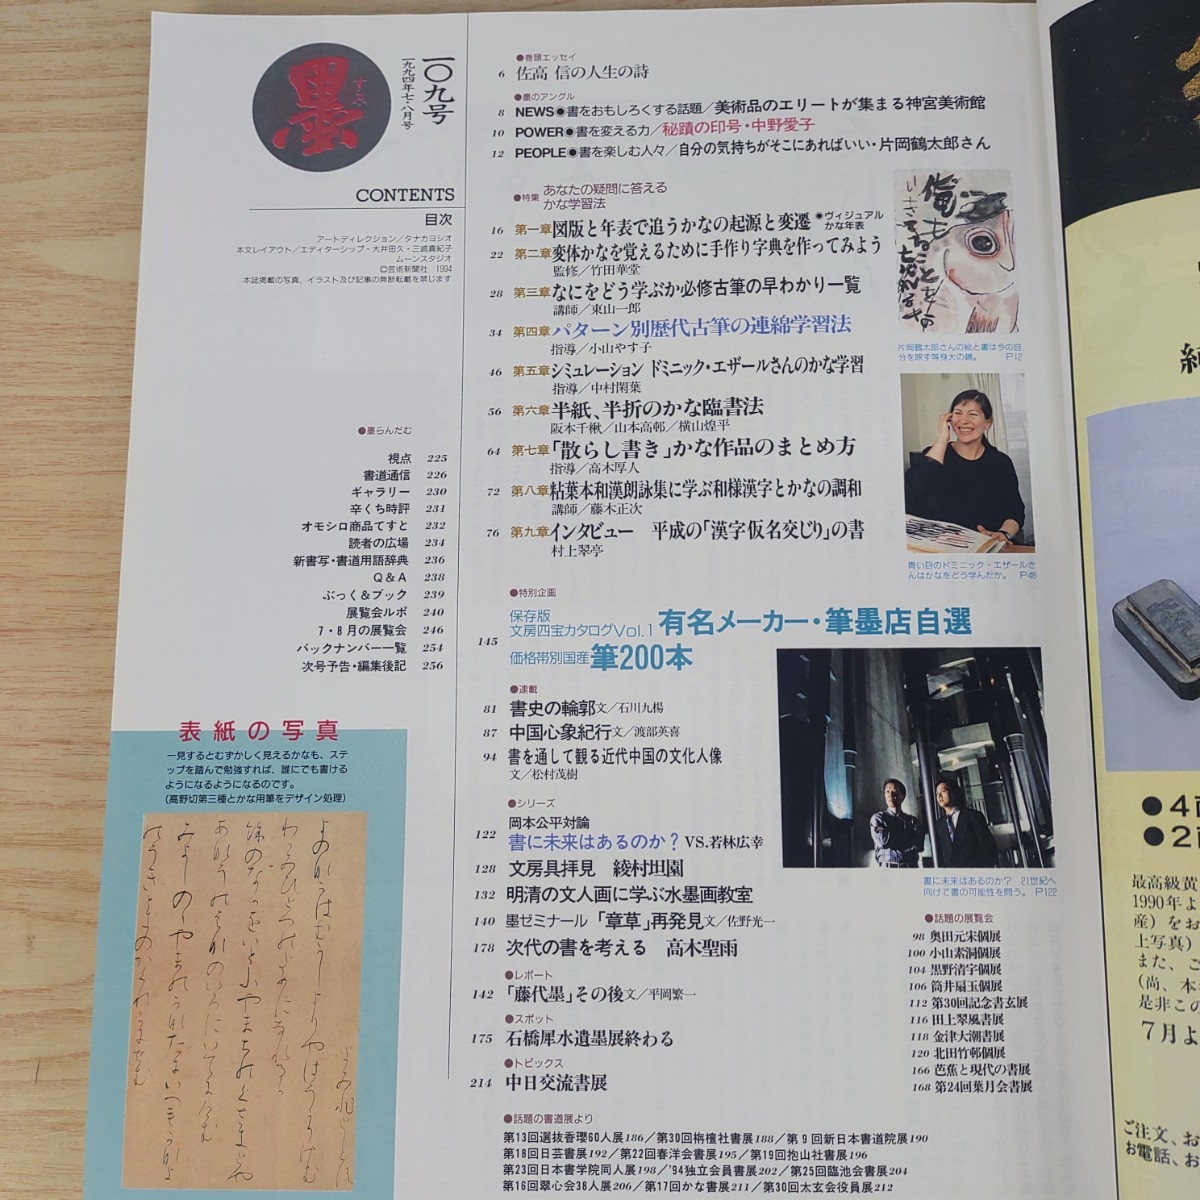 墨
すみ
一〇九号
一九九四年七・八月号
CONTENTS
目次
アートディレクション／タナカヨシオ
本文レイアウト／エディターシップ・大井田久・三崎真紀子
ムーンスタジオ
©芸術新聞社 1994
本誌掲載の写真、イラスト及び記事の無断転載を禁じます
●墨らんだむ
視点 225
書道通信 226
ギャラリー 230
辛くち時評 231
オモシロ商品てすと 232
読者の広場 234
新書写・書道用語辞典 236
Q&A 238
ぶっく&ブック 239
展覧会ルポ 240
7・8月の展覧会 246
バックナンバー一覧 254
次号予告・編集後記 256
表紙の写真
一見するとむずかしく見えるかなも、ステ
ップを踏んで勉強すれば、誰にでも書ける
ようになるようになるのです。
(高野切第三種とかな用筆をデザイン処理)
●巻頭エッセイ
6 佐高 信の人生の詩
●墨のアングル
8 NEWS●書をおもしろくする話題／美術品のエリートが集まる神宮美術館
10 POWER●書を変える力／秘蹟の印号・中野愛子
12 PEOPLE●書を楽しむ人々／自分の気持ちがそこにあればいい・片岡鶴太郎さん
●特集 あなたの疑問に答える
かな学習法
16 第一章 図版と年表で追うかなの起源と変遷 ●ヴィジュアル
かな年表
22 第二章 変体かなを覚えるために手作り字典を作ってみよう
監修／竹田華堂
28 第三章 なにをどう学ぶか必修古筆の早わかり一覧
講師／東山一郎
34 第四章 パターン別歴代古筆の連綿学習法
指導／小山やす子
46 第五章 シミュレーション ドミニック・エザールさんのかな学習
指導／中村閑葉
56 第六章 半紙、半折のかな臨書法
阪本千楸／山本高邨／横山煌平
64 第七章 「散らし書き」かな作品のまとめ方
指導／高木厚人
72 第八章 粘葉本和漢朗詠集に学ぶ和様漢字とかなの調和
講師／藤木正次
76 第九章 インタビュー 平成の「漢字仮名交じり」の書
村上琴亭
●特別企画
保存版
文房四宝カタログVol.1 有名メーカー・筆墨店自選
145 価格帯別国産 筆200本
●連載
81 書史の輪郭 文／石川九楊
87 中国心象紀行 文／渡部英喜
94 書を通して観る近代中国の文化人像
文／松村茂樹
●シリーズ
岡本公平対論
122 書に未来はあるのか？ VS.若林広幸
128 文房具拝見 綾村坦園
132 明清の文人画に学ぶ水墨画教室
140 墨ゼミナール 「章草」再発見 文／佐野光一
178 次代の書を考える 高木聖雨
●レポート
142 「藤代墨」その後 文／平岡繁一
●スポット
175 石橋犀水遺墨展終わる
●トピックス
214 中日交流書展
●話題の書道展より
第13回選抜香瓔60人展186／第30回栴檀社書展188／第9回新日本書道院展190
第18回日芸書展192／第22回春洋会書展195／第19回抱山社書展196
第23回日本書学院同人展198／'94独立会員書展202／第25回臨池会書展204
第16回翠心会38人展206／第17回かな書展211／第30回太玄会役員展212
片岡鶴太郎さんの絵と書は今の自
分を映す等身大の鏡。 P12
青い目のドミニック・エザールさ
んはかなをどう学んだか。 P46
書に未来はあるのか？ 21世紀へ
向けて書の可能性を問う。 P122
●話題の展覧会
98 奥田元宋個展
100 小山素洞個展
104 黒野清宇個展
106 筒井扇玉個展
112 第30回記念書玄展
116 田上琴風書展
118 金津大潮書展
120 北田竹邨個展
166 芭蕉と現代の書展
168 第24回葉月会書展
●4
●2
最高級黄
1990年よ
産）をお
上写真）
また、ご
（尚、本
是非この
7月よ
ご注文、お
お電話、お